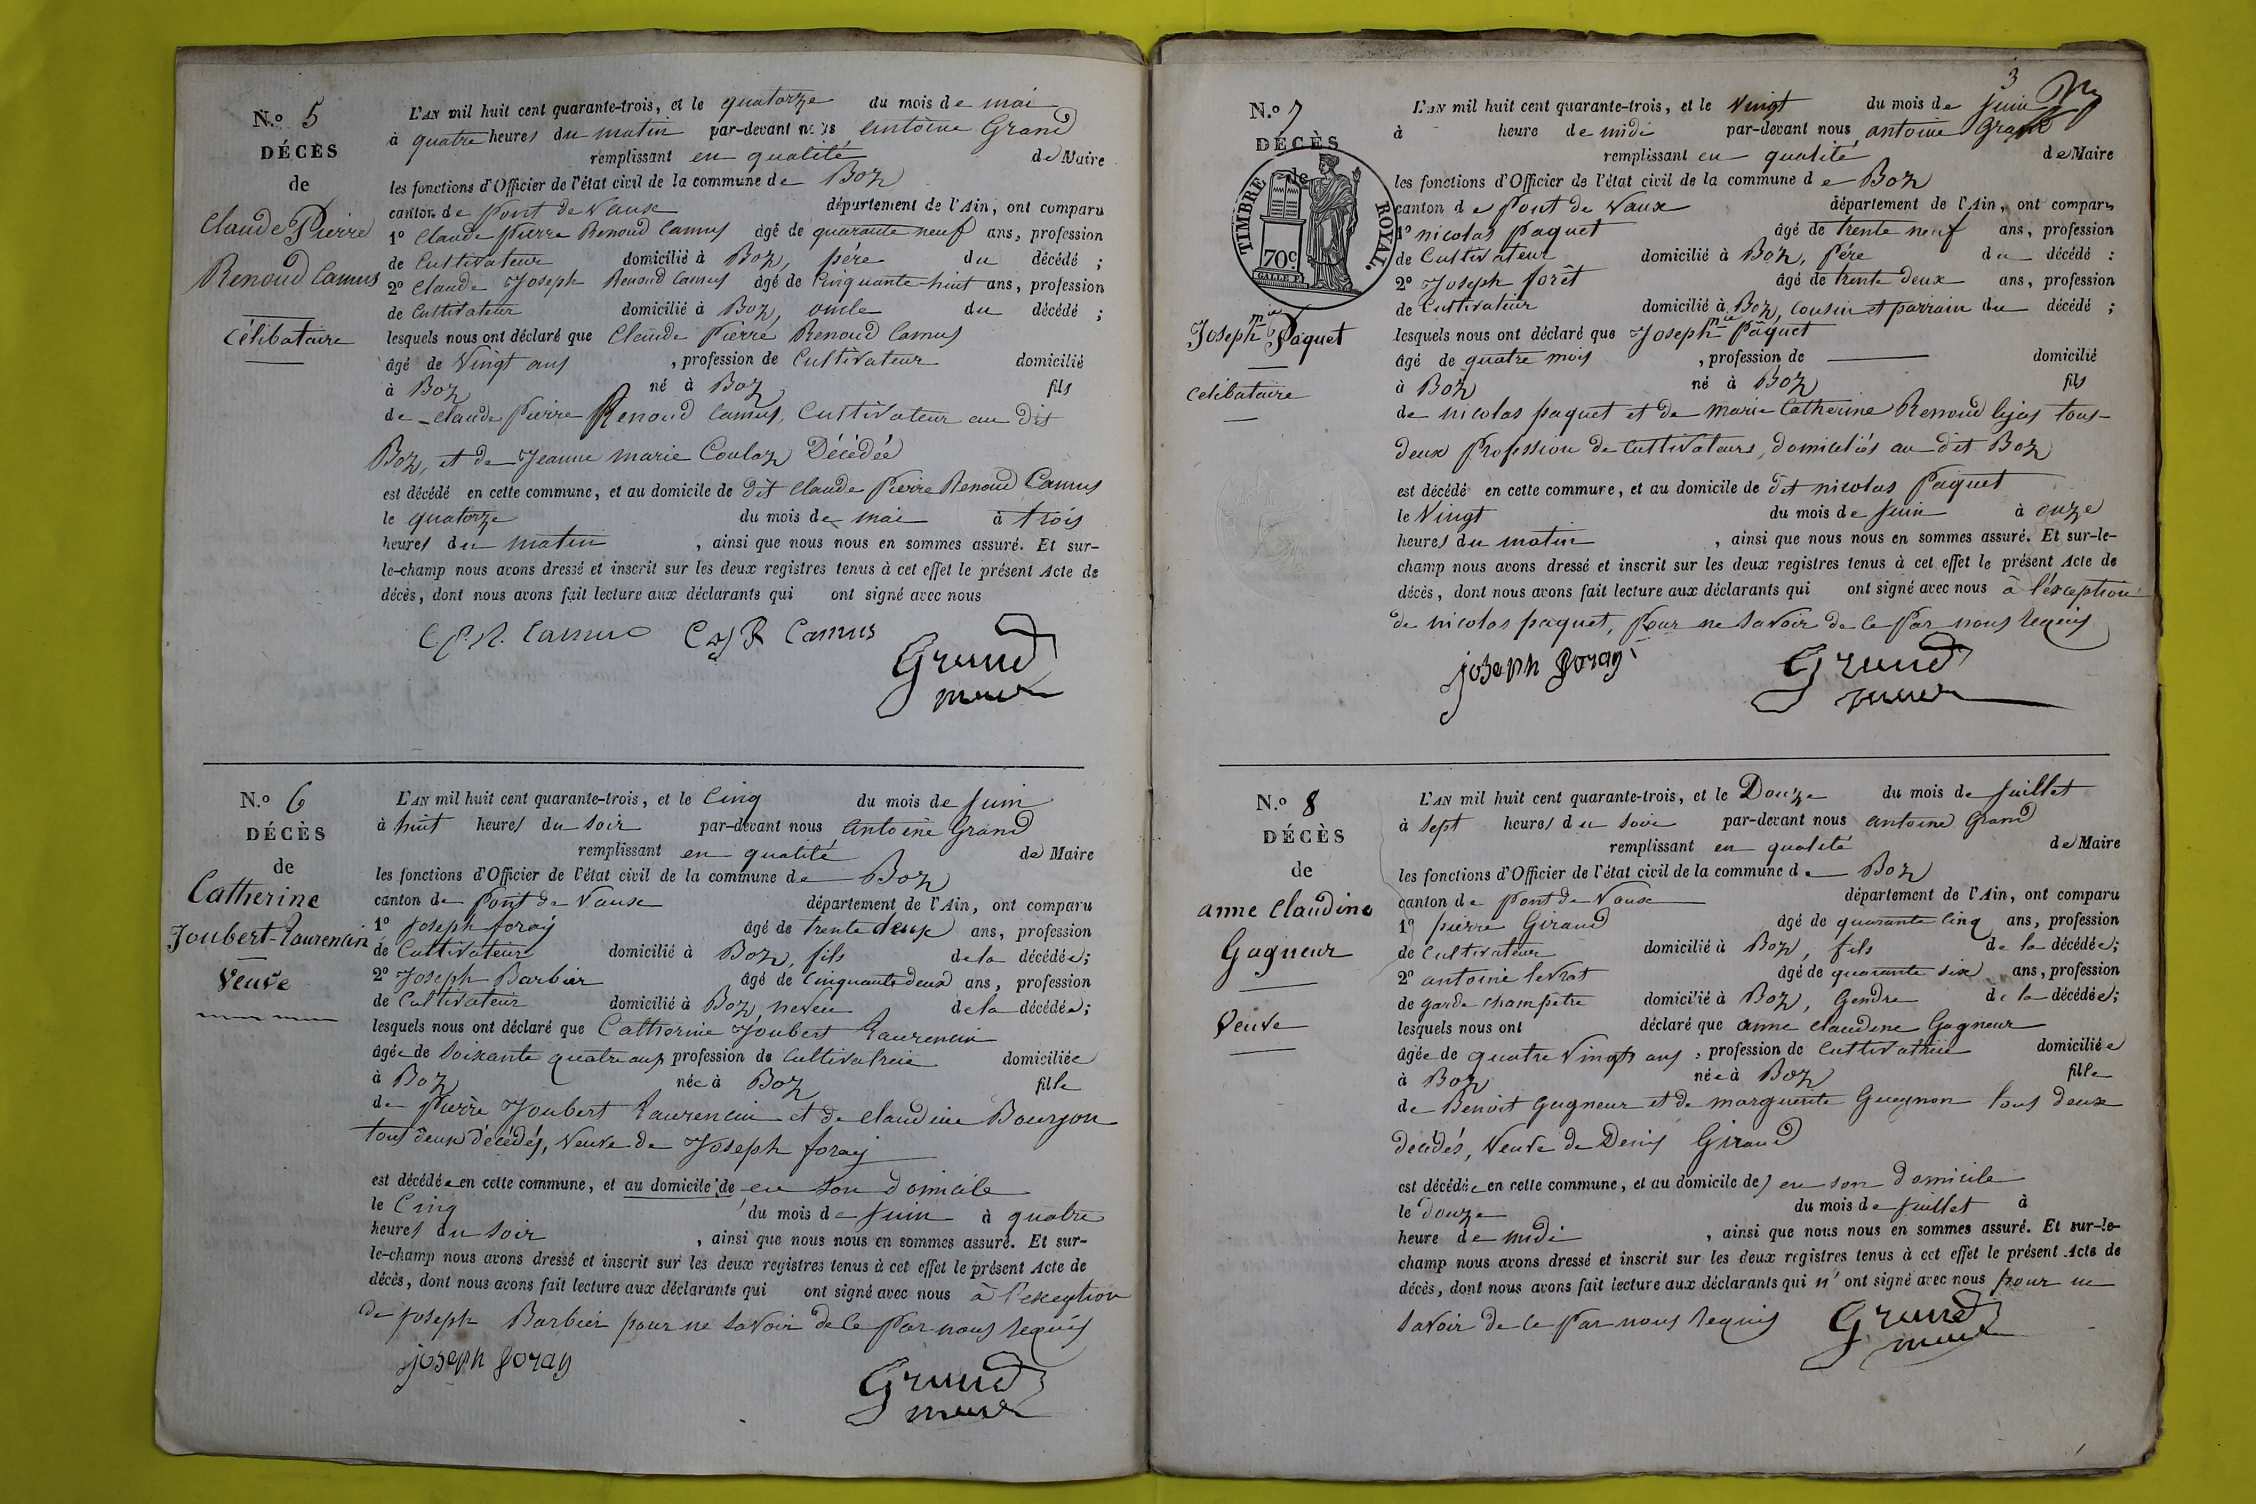 N.o 5
DÉCÈS
de
Claude Pierre
Renoud Camus
célibataire
L'AN mil huit cent quarante-trois, et le quatorze du mois de mai
à quatre heures du matin par-devant nous antoine Grand
remplissant en qualité de Maire
les fonctions d'Officier de l'état civil de la commune de Boz
canton de Pont de Vaux département de l'Ain, ont comparu
1o Claude Pierre Renoud Camus âgé de quarante neuf ans, profession
de Cultivateur domicilié à Boz, pére du décédé ;
2o Claude Joseph Renoud Camus âgé de Cinquante-huit ans, profession
de Cultivateur domicilié à Boz, oncle du décédé ;
lesquels nous ont déclaré que Claude Pierre Renoud Camus
âgé de Vingt ans , profession de Cultivateur domicilié
à Boz né à Boz fils
de Claude Pierre Renoud Camus, Cultivateur au dit
Boz, et de Jeanne marie Couloz Décédée
est décédé en cette commune, et au domicile de dit Claude Pierre Renoud Camus
le quatorze du mois de mai à trois
heures du matin , ainsi que nous nous en sommes assuré. Et sur-
le-champ nous avons dressé et inscrit sur les deux registres tenus à cet effet le présent Acte de
décès, dont nous avons fait lecture aux déclarants qui ont signé avec nous
C.P.R. Camus C J R Camus
Grand
maire
N.o 6
DÉCÈS
de
Catherine
Joubert-Laurencin
Veuve
L'AN mil huit cent quarante-trois, et le Cinq du mois de Juin
à huit heures du soir par-devant nous antoine Grand
remplissant en qualité de Maire
les fonctions d'Officier de l'état civil de la commune de Boz
canton de Pont de Vaux département de l'Ain, ont comparu
1o Joseph foray âgé de trente deux ans, profession
de Cultivateur domicilié à Boz, fils de la décédée ;
2o Joseph Barbier âgé de Cinquante deux ans, profession
de Cultivateur domicilié à Boz, neveu de la décédée ;
lesquels nous ont déclaré que Catherine Joubert Laurencin
âgée de Soixante quatre ans profession de Cultivatrice domiciliée
à Boz née à Boz fille
de Pierre Joubert Laurencin et de Claudine Bourjon
tous deux décédés, Veuve de Joseph foray
est décédée en cette commune, et au domicile de en son domicile
le Cinq du mois de Juin à quatre
heures du soir , ainsi que nous nous en sommes assuré. Et sur-
le-champ nous avons dressé et inscrit sur les deux registres tenus à cet effet le présent Acte de
décès, dont nous avons fait lecture aux déclarants qui ont signé avec nous à l'exception
de Joseph Barbier pour ne savoir de ce Par nous requis
joseph foray
Grand
maire
3
N.o 7
DÉCÈS
de
TIMBRE ROYAL.
70c
Joseph mie Paquet
celibataire
L'AN mil huit cent quarante-trois, et le Vingt du mois de Juin
à heure de midi par-devant nous antoine Grand
remplissant en qualité de Maire
les fonctions d'Officier de l'état civil de la commune de Boz
canton de Pont de Vaux département de l'Ain, ont comparu
1o nicolas Paquet âgé de trente neuf ans, profession
de Cultivateur domicilié à Boz, Pére du décédé :
2o Joseph forêt âgé de trente deux ans, profession
de Cultivateur domicilié à Boz, cousin et parrain du décédé ;
lesquels nous ont déclaré que Joseph mie Pâquet
âgé de quatre mois , profession de domicilié
à Boz né à Boz fils
de nicolas paquet et de marie Catherine Renoud lyas tous
deux Profession de cultivateurs, domiciliés au dit Boz
est décédé en cette commune, et au domicile de dit nicolas Paquet
le Vingt du mois de Juin à onze
heures du matin , ainsi que nous nous en sommes assuré. Et sur-le-
champ nous avons dressé et inscrit sur les deux registres tenus à cet effet le présent Acte de
décès, dont nous avons fait lecture aux déclarants qui ont signé avec nous à l'exception
de nicolas paquet, Pour ne savoir de ce Par nous requis
joseph foray
Grand
maire
N.o 8
DÉCÈS
de
anne Claudine
Gagneur
Veuve
L'AN mil huit cent quarante-trois, et le Douze du mois de Juillet
à sept heures du soir par-devant nous antoine Grand
remplissant en qualité de Maire
les fonctions d'Officier de l'état civil de la commune de Boz
canton de Pont de Vaux département de l'Ain, ont comparu
1o pierre Giraud âgé de quarante Cinq ans, profession
de Cultivateur domicilié à Boz, fils de la décédée ;
2o antoine levrat âgé de quarante six ans, profession
de garde champetre domicilié à Boz, Gendre de la décédée ;
lesquels nous ont déclaré que anne Claudine Gagneur
âgée de quatre Vingts ans , profession de Cultivatrice domiciliée
à Boz née à Boz fille
de Benoit Gagneur et de marguerite Gueynon tous deux
decédés, Veuve de Denis Giraud
est décédée en cette commune, et au domicile de en son domicile
le douze du mois de Juillet à
heure de midi , ainsi que nous nous en sommes assuré. Et sur-le-
champ nous avons dressé et inscrit sur les deux registres tenus à cet effet le présent Acte de
décès, dont nous avons fait lecture aux déclarants qui n'ont signé avec nous pour ne
savoir de ce Par nous requis
Grand
maire